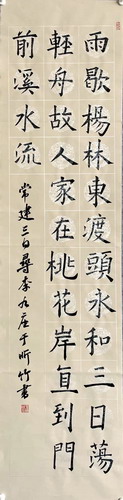 雨歇楊林東渡頭永和三日蕩
輕舟故人家在桃花岸直到門
前溪水流
常建三日尋李九庄于昕竹書